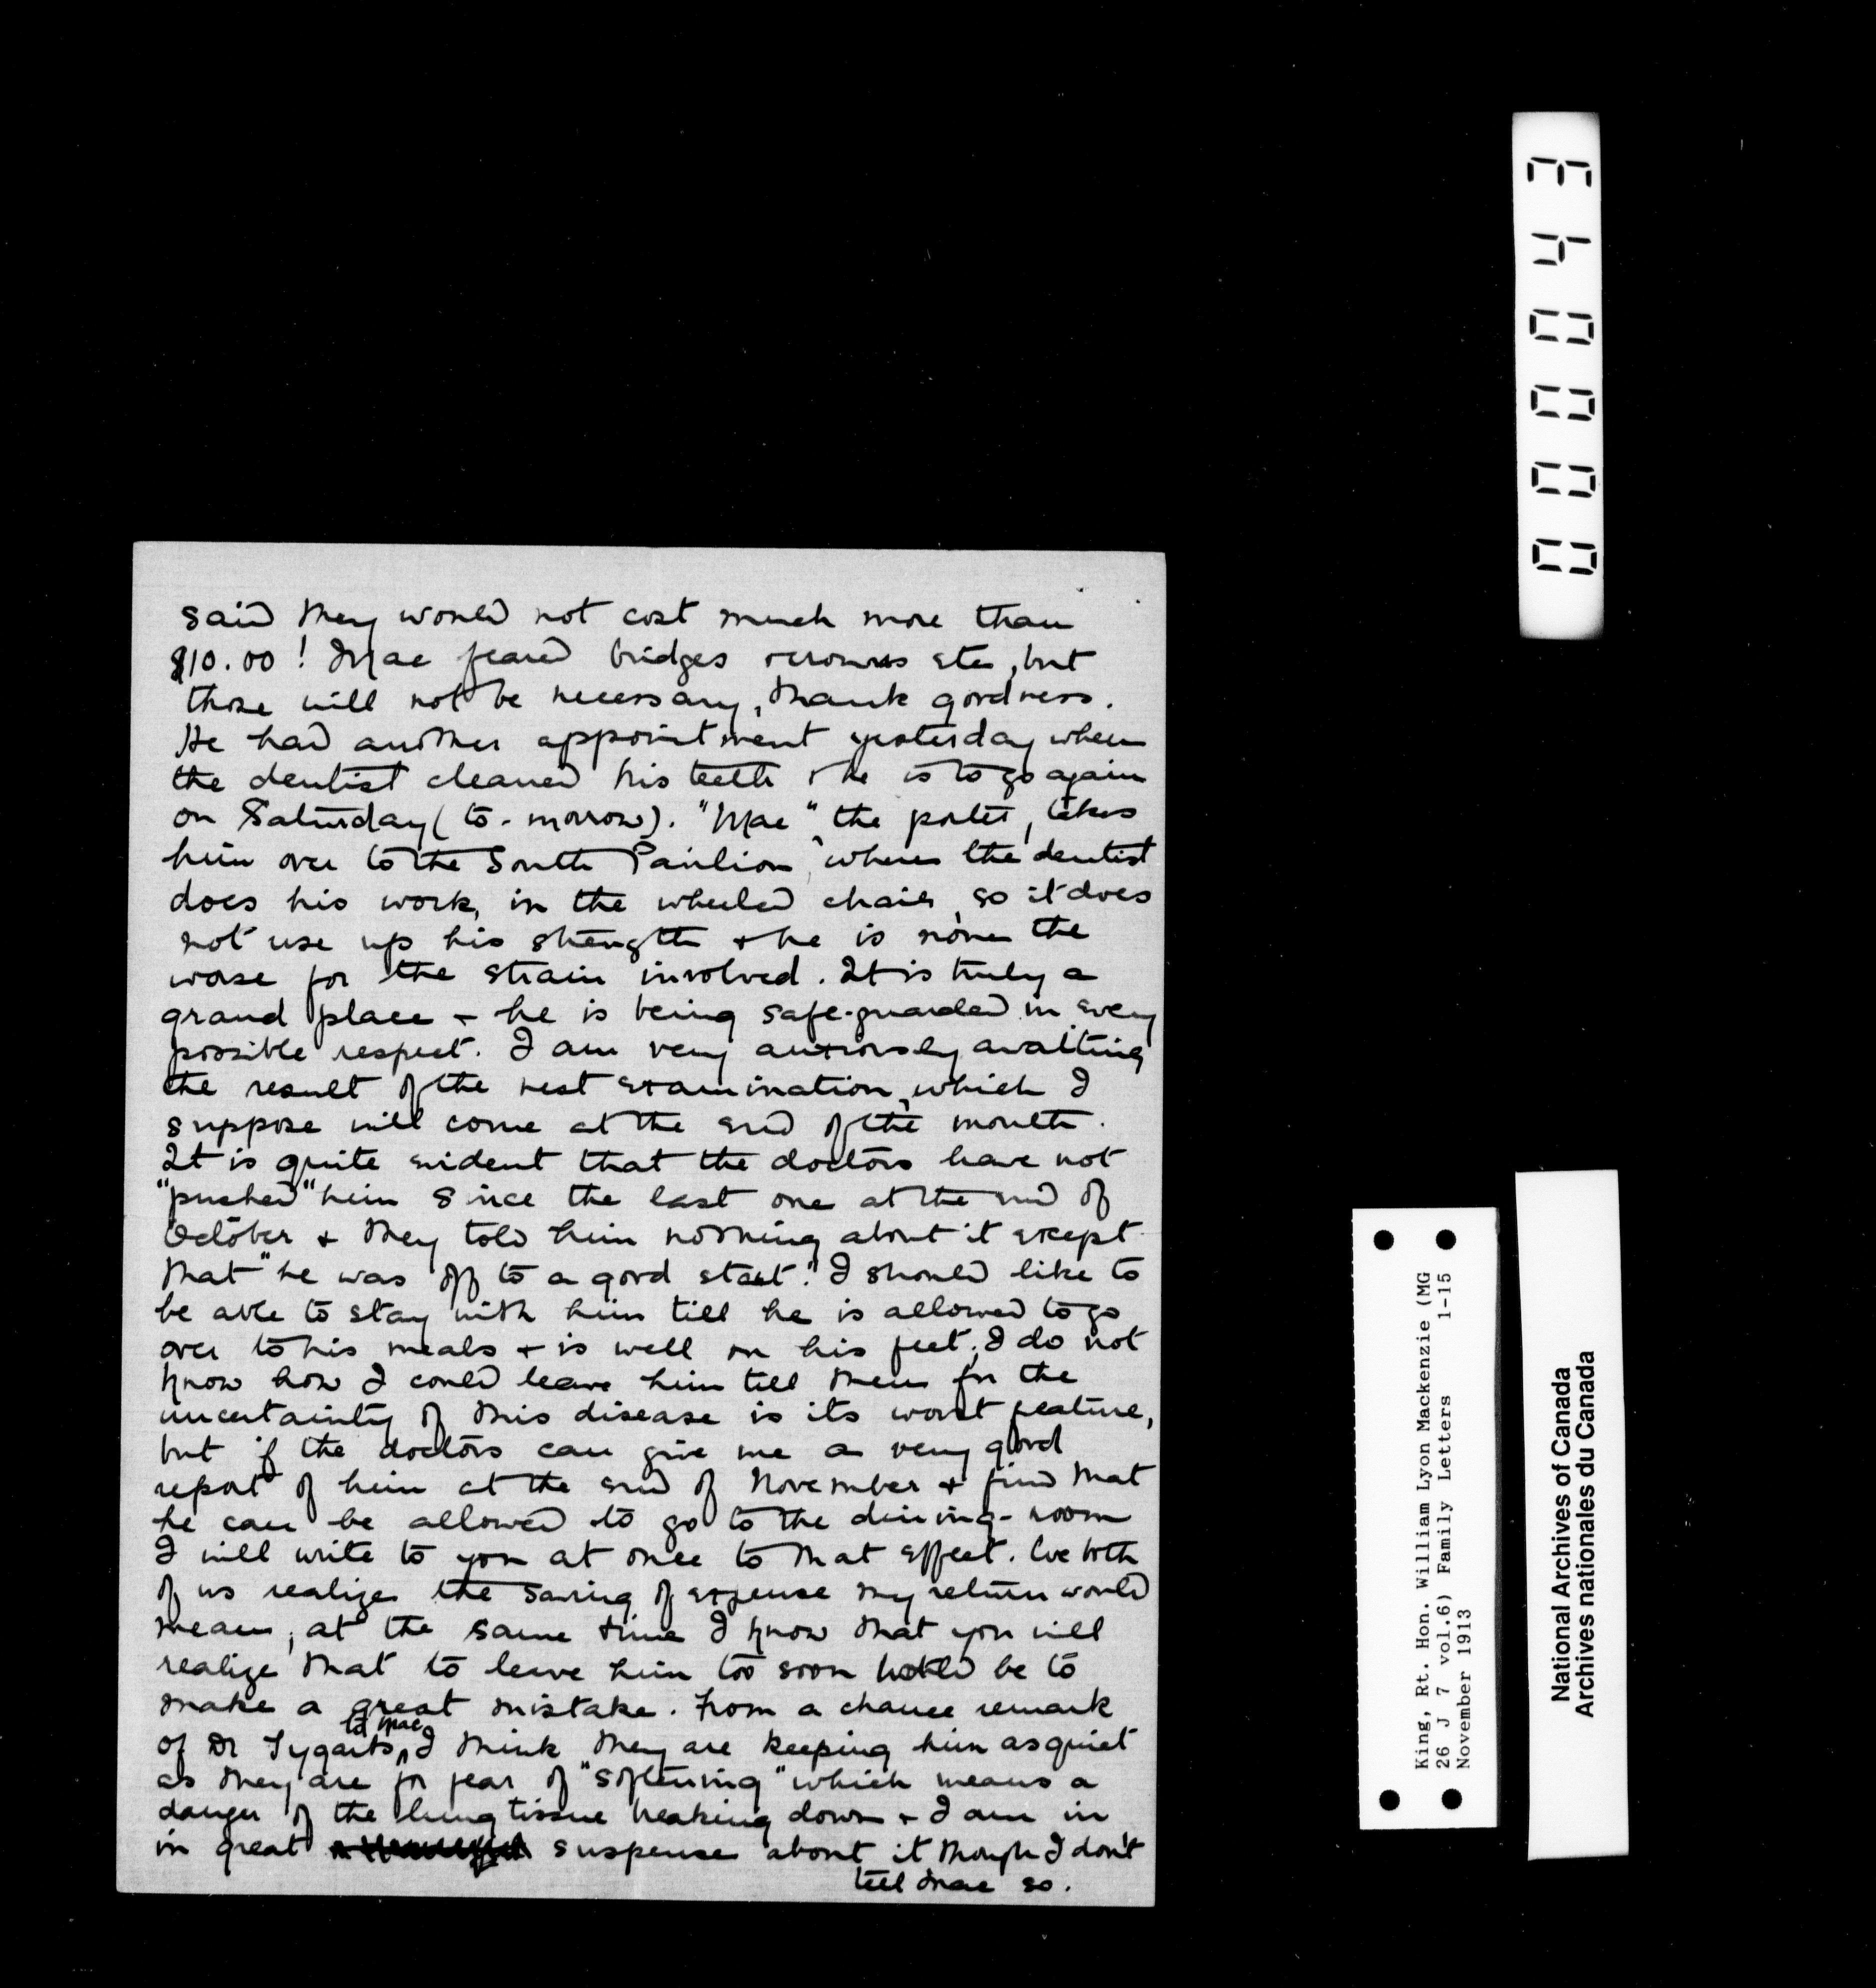 said they would not cost much more than
$10.00! Mac feared bridges + crowns etc, but
those will not be necessary, thank goodness.
He had another appointment yesterday when
the dentist cleaned his teeth & he is to go again
on Saturday (to-morrow). "Mac", the porter, takes
him over to the South Pavilion, where the dentist
does his work, in the wheeled chair, so it does
not use up his strength & he is none the
worse for the strain involved. It is truly a
grand place & he is being safe-guarded in every
possible respect. I am very anxiously awaiting
the result of the next examination, which I
suppose will come at the end of the month.
It is quite evident that the doctors have not
"pushed" him since the last one at the end of
October & they told him nothing about it except
that "he was off to a good start." I should like to
be able to stay with him till he is allowed to go
over to his meals & is well on his feet; I do not
know how I could leave him till then for the
uncertainty of this disease is its worst feature,
but if the doctors can give me a very good
report of him at the end of November & find that
he can be allowed to go to the dining-room
I will write to you at once to that effect. We both
of us realize the saving of expense my return would
mean, at the same time I know that you will
realize that to leave him too soon would be to
make a great mistake. From a chance remark
to Mac
of Dr Tygarts, I think they are keeping him as quiet
as they are for fear of "softening" which means a
danger of the lung tissue breaking down & I am in
in great suspense about it though I don't
tell Mac so.
000043
King, Rt. Hon. William Lyon Mackenzie (MG
26 J 7 vol.6) Family Letters 1-15
November 1913
National Archives of Canada
Archives nationales du Canada